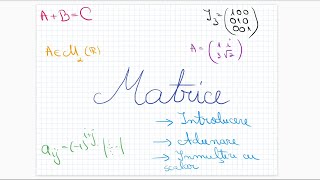 A+B=C
J₃=(1 0 0
0 1 0
0 0 1)
A∈M₂(ℝ)
A=(1 i
3 √2)
Matrice
→ Introducere
→ Adunare
→ Inmulțire cu
scalar
aᵢⱼ=(-1)ⁱ⁺ʲ